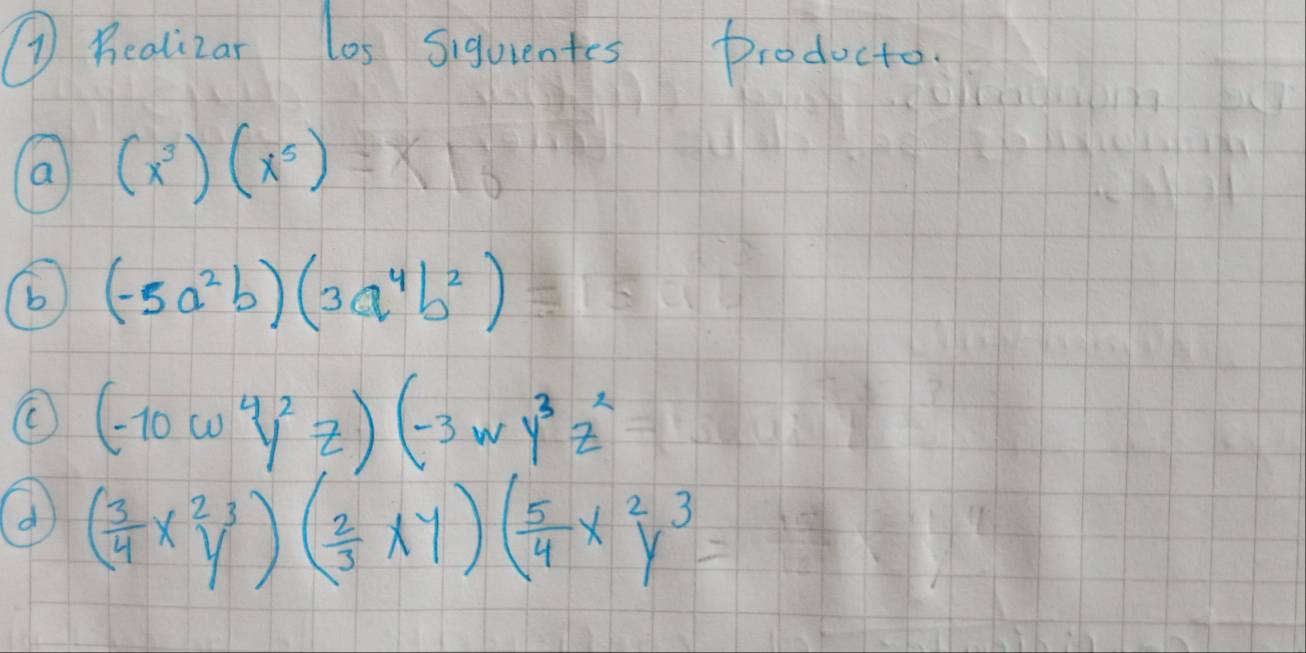 ① Realizar los Siguientes Producto.
ⓐ (x³)(x⁵)
ⓑ (-5a²b)(3a⁴b²)
ⓒ (-10w⁴y²z)(-3wy³z²
ⓓ (3/4 x²y³)(2/3 xy)(5/4 x²y³ =